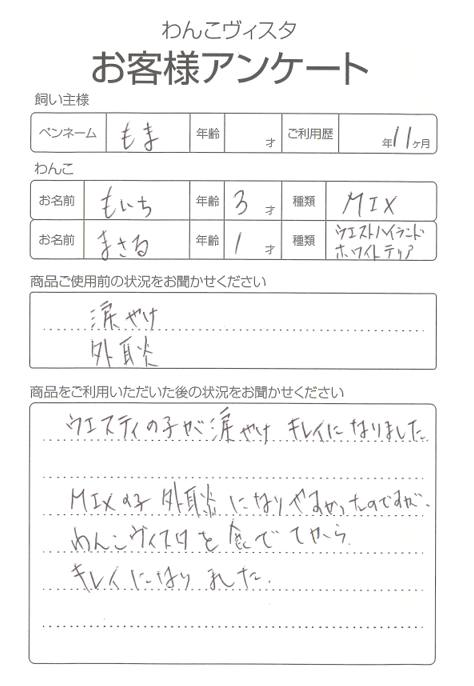 わんこヴィスタ
お客様アンケート
飼い主様
ペンネーム もま 年齢 才 ご利用歴 年11ヶ月
わんこ
お名前 もいち 年齢 3才 種類 MIX
お名前 まさる 年齢 1才 種類 ウエストハイランド
ホワイトテリア
商品ご使用前の状況をお聞かせください
涙やけ
外耳炎
商品をご利用いただいた後の状況をお聞かせください
ウエスティの子が涙やけ キレイになりました
MIXの子 外耳炎になりやすかったのですが、
わんこヴィスタを食べてから
キレイになりました.